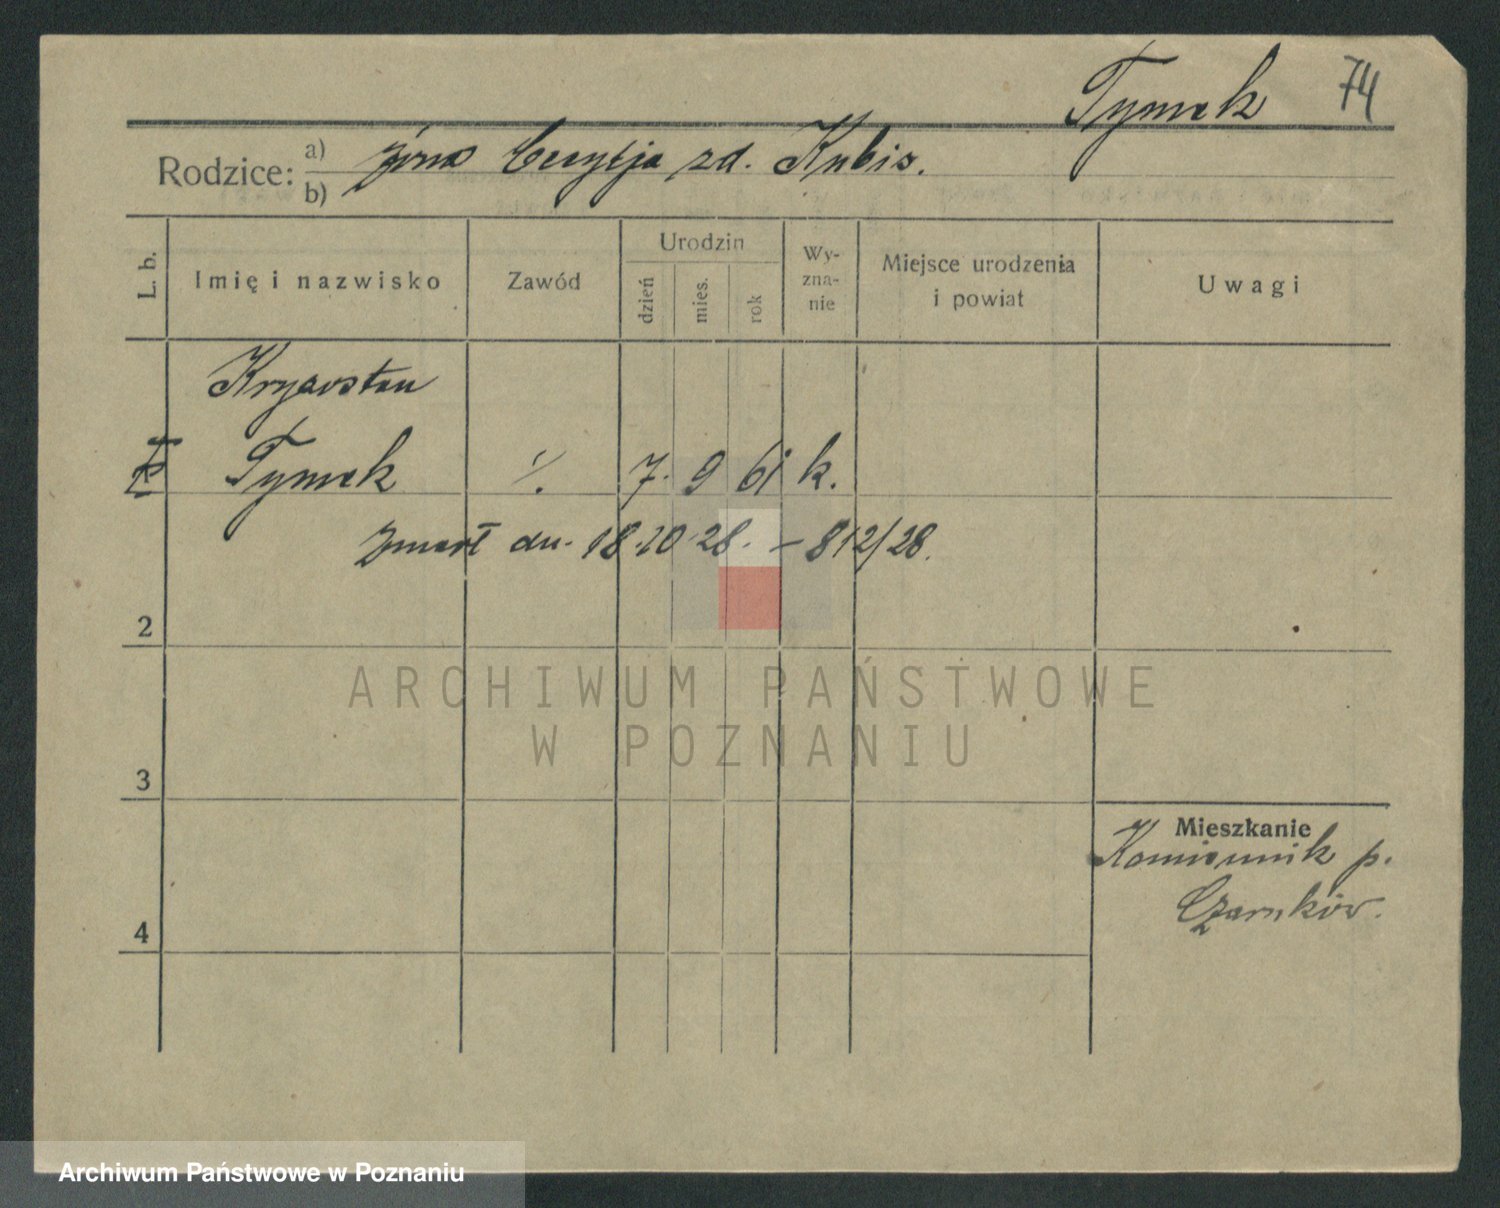 Tymek 74
Rodzice: a) żona Cecylja zd. Kubis.
b)
L. b. Imię i nazwisko Zawód Urodzin dzień mies. rok Wy-zna-nie Miejsce urodzenia i powiat Uwagi
Tymek ·/. 7. 9 61 k.
zmarł dn. 18.10.28. – 812/28.
2
3
4
Mieszkanie
p.
Czarnków.
ARCHIWUM PAŃSTWOWE
W POZNANIU
Archiwum Państwowe w Poznaniu